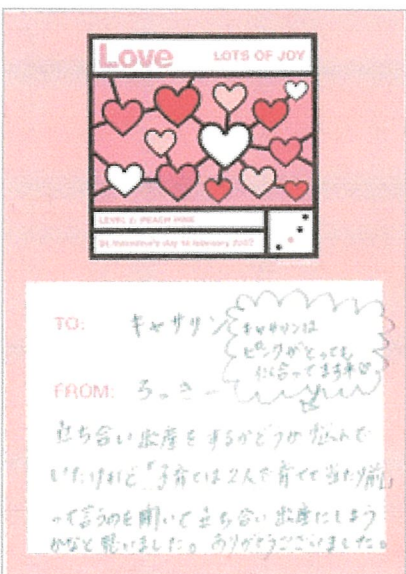 Love
LOTS OF JOY
LEVEL 2: PEACH PINK
St. Valentine's day 14 february 2007
TO: キャサリン
キャサリンは
ピンクがとっても
似合ってます
FROM: ろっきー
立ち合い出産をするかどうか悩んで
いたけれど「子育ては2人で育てて当たり前」
って言うのを聞いて立ち合い出産にしよう
かなと思いました。ありがとうございました。